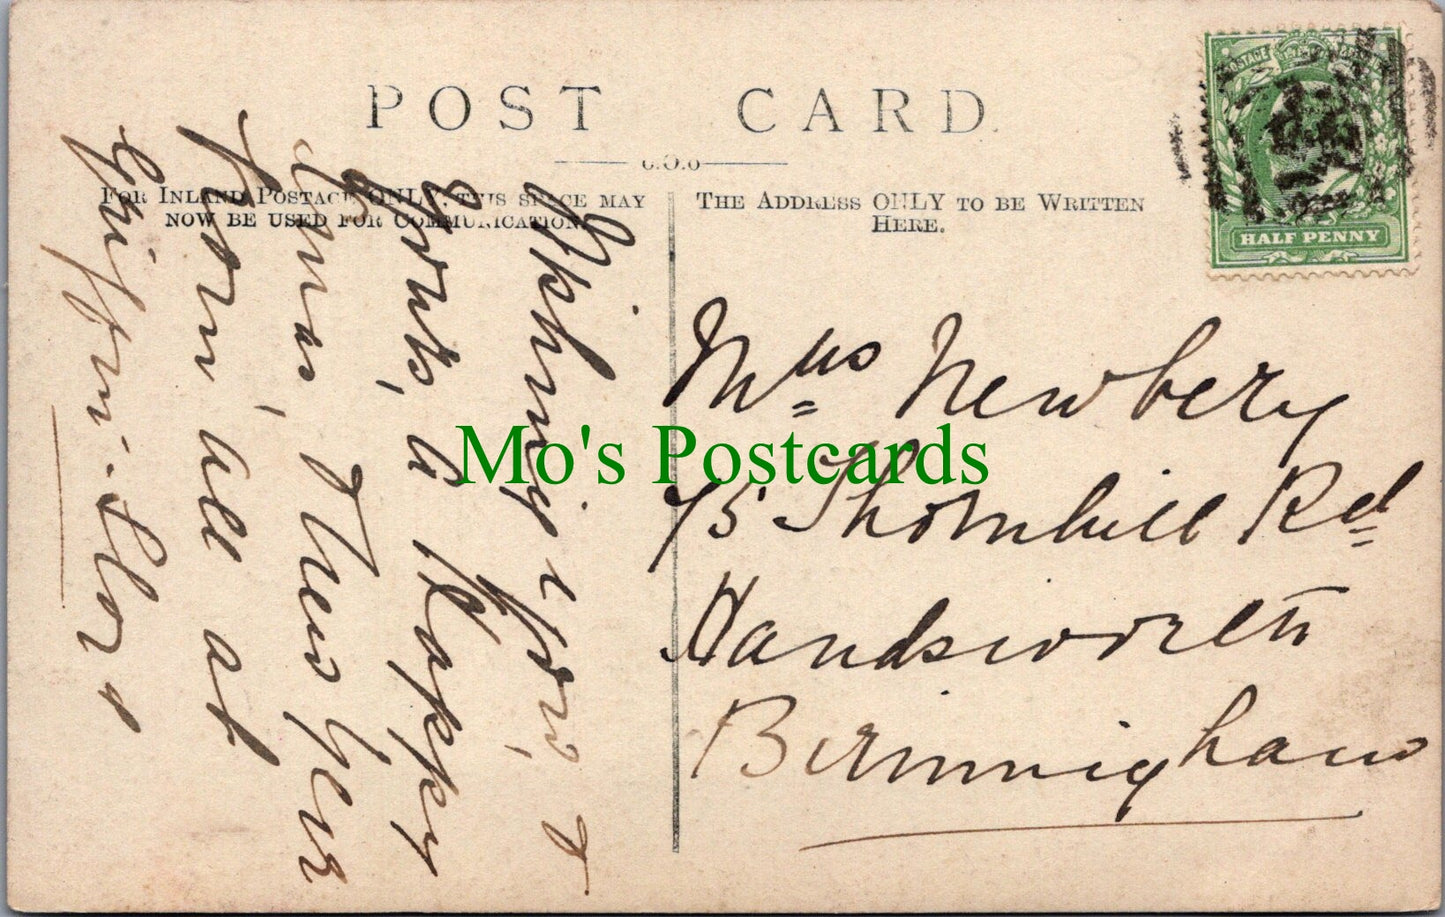 POST CARD
FOR INLAND POSTAGE ONLY, THIS SPACE MAY
NOW BE USED FOR COMMUNICATION.
THE ADDRESS ONLY TO BE WRITTEN
HERE.
HALF PENNY
Wishing you, &
yours, a Happy
Xmas, & New Year
from, all at
Mrs Newbery
75 Thornhill Rd
Handsworth
Birmingham
Mo's Postcards